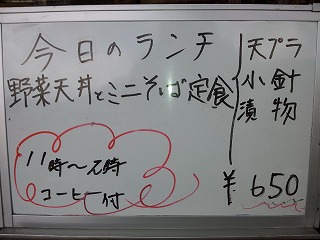 今日のランチ
野菜天丼とミニそば定食
天プラ
小針
漬物
11時〜2時
コーヒー付
¥650